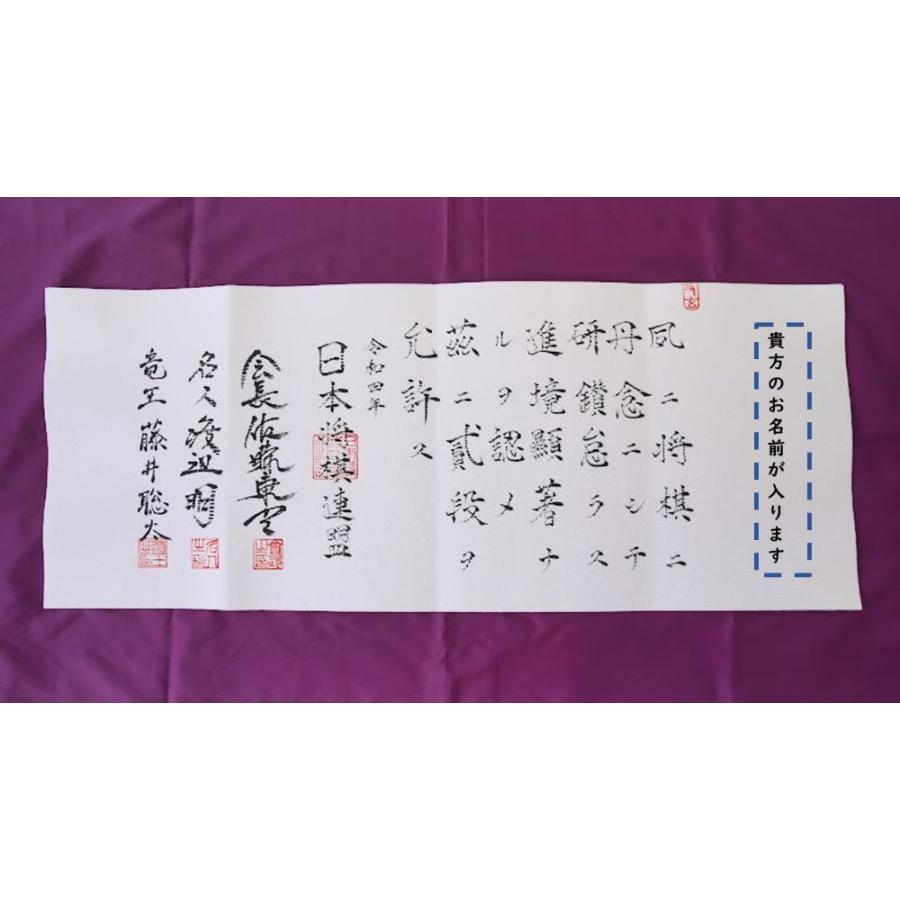 貴方のお名前が入ります
夙ニ将棋ニ
丹念ニシテ
研鑚怠ラス
進境顯著ナ
ルヲ認メ
茲ニ貳段ヲ
允許ス
令和四年
日本将棋連盟
会長佐藤康光
名人渡辺明
竜王藤井聡太